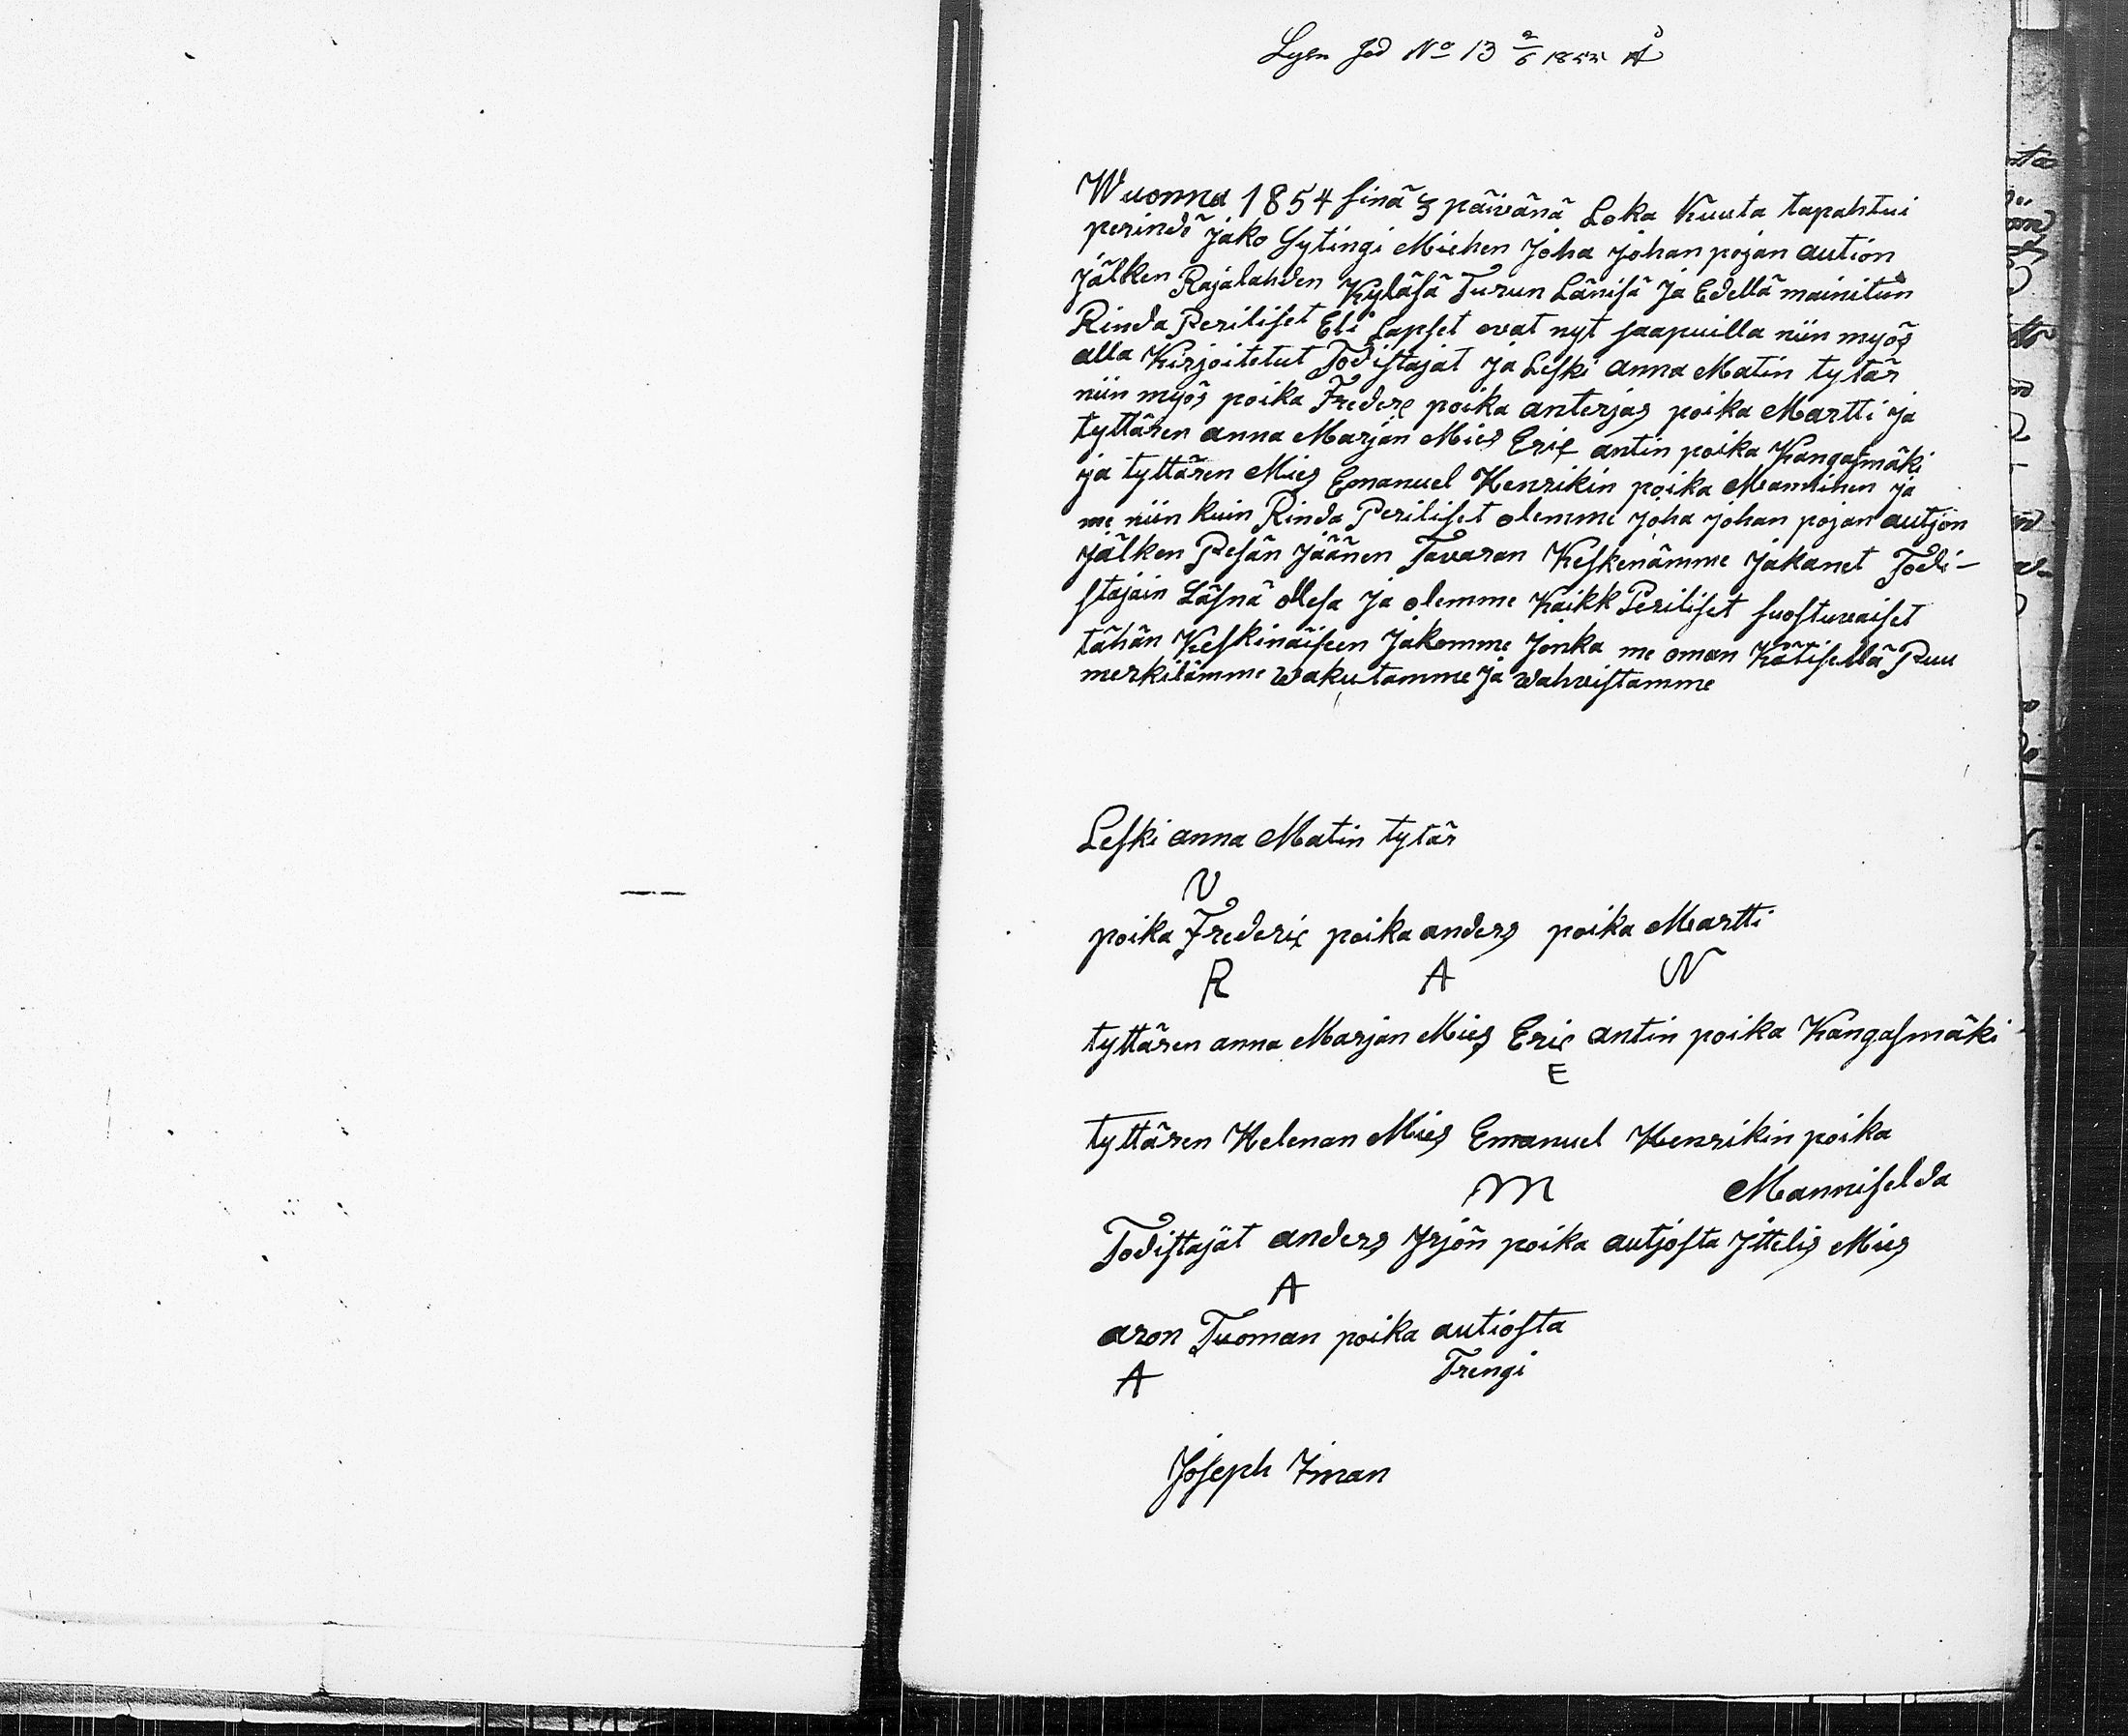 No 13 2/6 1855
Wuonna 1854 sinä 3 päivänä Loka Kuuta tapahtui
perindö jako Sytingi Miehen Joha Johan pojan aution
jälken Rajalahden Kyläsä Turun Länisä ja Edellä mainitun
Rinda Periliset Eli Lapset ovat nyt saapuilla niin myös
alla Kirjoitetut Todistajat ja Leski anna Matin tytär
niin myös poika Frederx poika anterjas poika Martti ja
tyttären anna Marjan Mies Erix antin poika Kangasmäki
ja tyttären Mies Emanuel Henrikin poika Manninen ja
me niin kuin Rinda Periliset olemme Joha Johan pojan autjon
jälken Pesän jäänen Tavaran Keskenämme jakanet Todi-
stajain Läsnä ollesa ja olemme Kaikk Periliset suostuvaiset
tähän Keskinäiseen Jakomme Jonka me oman Kätisellä Puu
merkilämme wakutamme ja wahvistamme
Leski anna Matin tytär
V
poika Frederix poika anders poika Martti
R A N
tyttären anna Marjan Mies Erix antin poika Kangasmäki
E
tyttären Helenan Mies Emanuel Henrikin poika
M Manniselda
Todistajat anders Yrjön poika autjosta Jttelis Mies
A
aron Tuoman poika autiosta
A Trengi
Joseph Jman